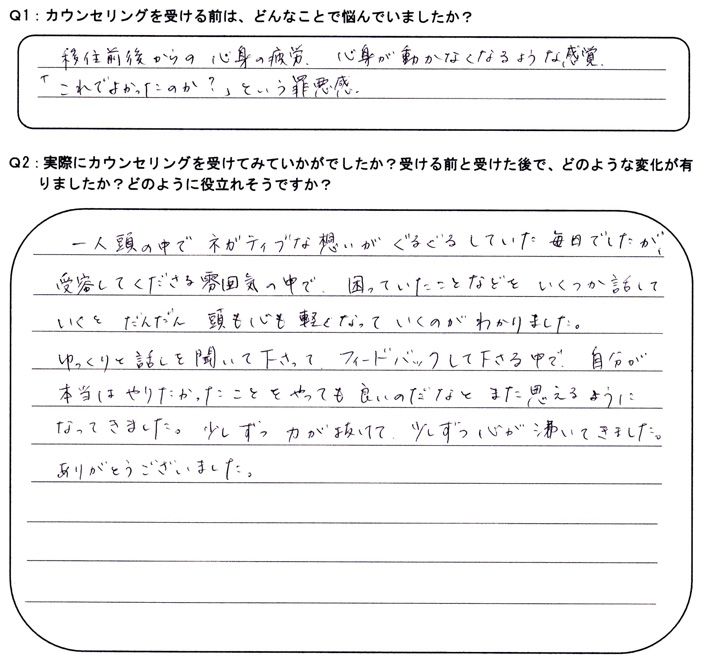 Q1：カウンセリングを受ける前は、どんなことで悩んでいましたか？
移住前後からの心身の疲労、心身が動かなくなるような感覚、
「これでよかったのか？」という罪悪感、
Q2：実際にカウンセリングを受けてみていかがでしたか？受ける前と受けた後で、どのような変化が有
りましたか？どのように役立れそうですか？
一人頭の中でネガティブな想いがぐるぐるしていた毎日でしたが、
受容してくださる雰囲気の中で、困っていたことなどをいくつか話して
いくとだんだん頭も心も軽くなっていくのがわかりました。
ゆっくりと話しを聞いて下さって、フィードバックして下さる中で、自分が
本当はやりたかったことをやっても良いのだなとまた思えるように
なってきました。少しずつ力が抜けて、少しずつ心が沸いてきました。
ありがとうございました。